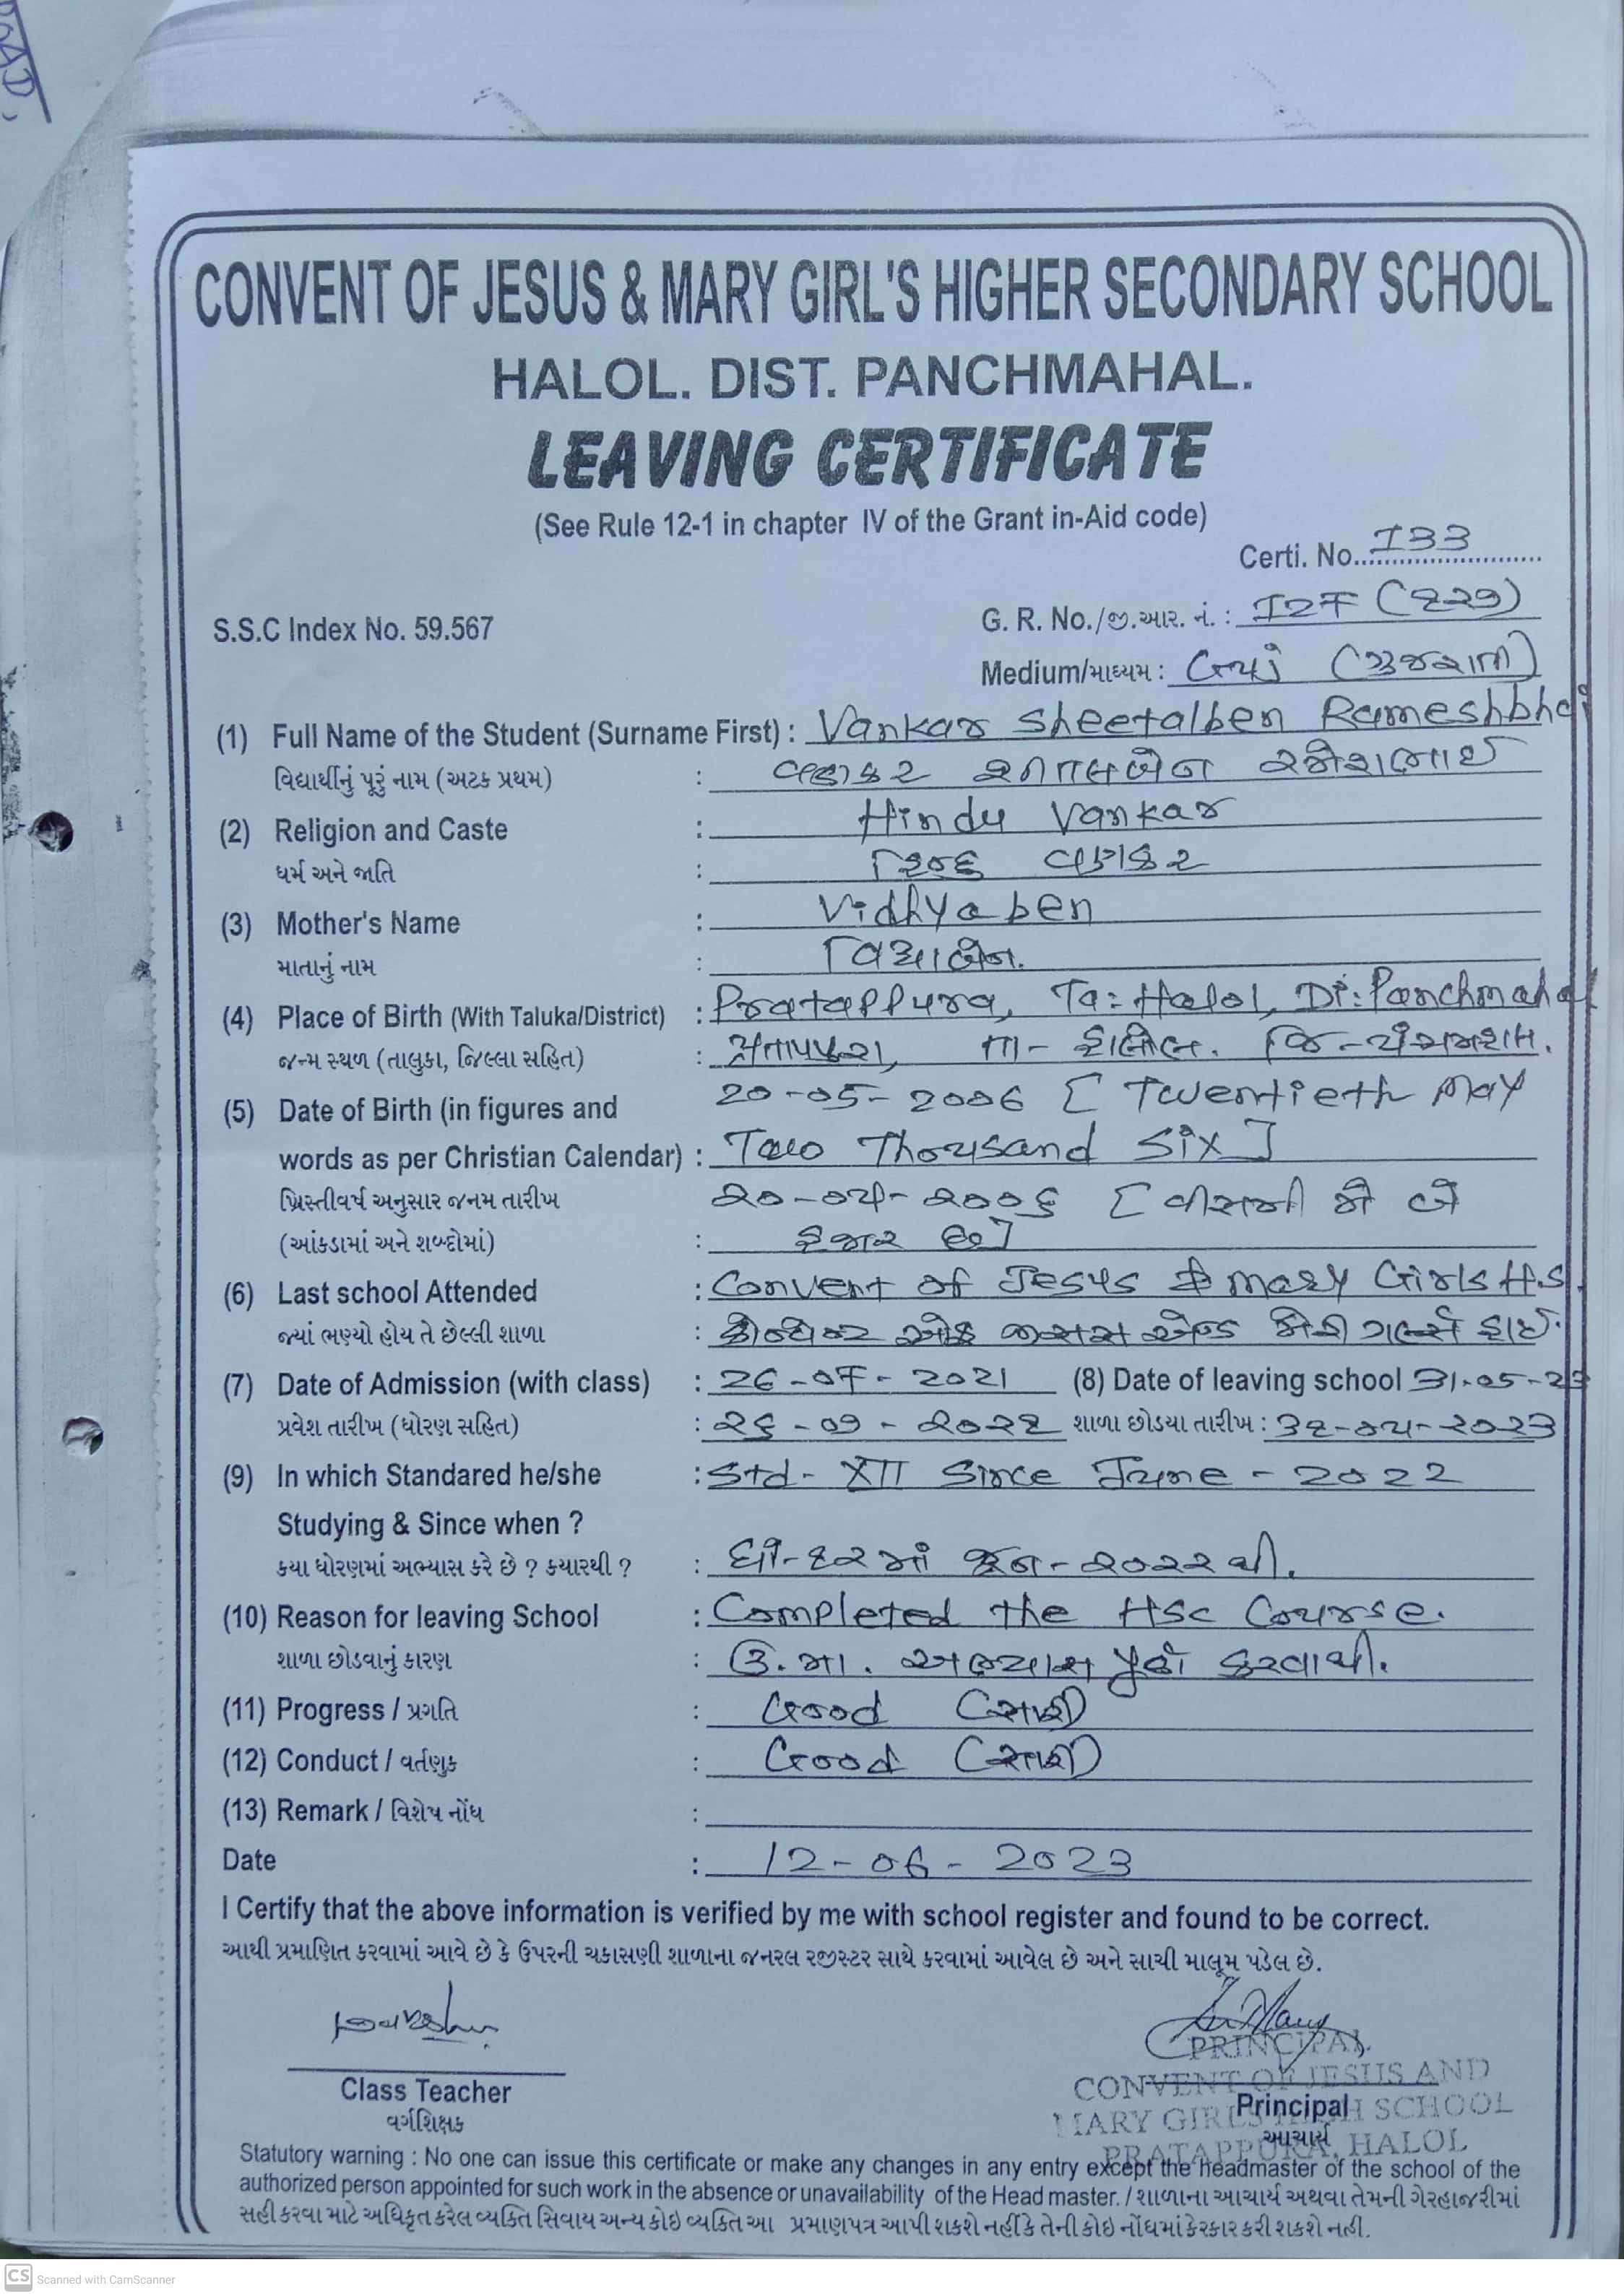 GAD.
CONVENT OF JESUS & MARY GIRL'S HIGHER SECONDARY SCHOOL
HALOL. DIST. PANCHMAHAL.
LEAVING CERTIFICATE
(See Rule 12-1 in chapter IV of the Grant in-Aid code)
Certi. No. 133
S.S.C Index No. 59.567
G. R. No./જી.આર. નં. : 127 (૧૨૭)
Medium/માધ્યમ : Guj (ગુજરાતી)
(1) Full Name of the Student (Surname First) : Vankar Sheetalben Rameshbhai
વિદ્યાર્થીનું પૂરું નામ (અટક પ્રથમ) : વણકર શીતલબેન રમેશભાઈ
(2) Religion and Caste : Hindu Vankar
ધર્મ અને જાતિ : હિન્દુ વણકર
(3) Mother's Name : Vidhyaben
માતાનું નામ : વિદ્યાબેન.
(4) Place of Birth (With Taluka/District) : Pratappura, Ta:Halol, Di:Panchmahal
જન્મ સ્થળ (તાલુકા, જિલ્લા સહિત) : પ્રતાપપુરા, તા- હાલોલ. જિ-પંચમહાલ.
(5) Date of Birth (in figures and 20-05-2006 [ Twentieth May
words as per Christian Calendar) : Two Thousand Six ]
ખ્રિસ્તીવર્ષ અનુસાર જનમ તારીખ ૨૦-૦૫-૨૦૦૬ [ વીસમી મે બે
(આંકડામાં અને શબ્દોમાં) : હજાર છ ]
(6) Last school Attended : Convent of Jesus & Mary Girls H.S.
જ્યાં ભણ્યો હોય તે છેલ્લી શાળા : કોન્વેન્ટ ઓફ જીસસ એન્ડ મેરી ગર્લ્સ હાઈ.
(7) Date of Admission (with class) : 26-07-2021 (8) Date of leaving school 31-05-23
પ્રવેશ તારીખ (ધોરણ સહિત) : ૨૬-૦૭-૨૦૨૧ શાળા છોડયા તારીખ : ૩૧-૦૫-૨૦૨૩
(9) In which Standared he/she : Std- XII Since June - 2022
Studying & Since when ?
કયા ધોરણમાં અભ્યાસ કરે છે ? કયારથી ? : ધો-૧૨માં જૂન-૨૦૨૨થી.
(10) Reason for leaving School : Completed the HSC Course.
શાળા છોડવાનું કારણ : ઉ.મા. અભ્યાસ પૂર્ણ કરવાથી.
(11) Progress / પ્રગતિ : Good (સારી)
(12) Conduct / વર્તણુક : Good (સારી)
(13) Remark / વિશેષ નોંધ :
Date : 12-06-2023
I Certify that the above information is verified by me with school register and found to be correct.
આથી પ્રમાણિત કરવામાં આવે છે કે ઉપરની ચકાસણી શાળાના જનરલ રજીસ્ટર સાથે કરવામાં આવેલ છે અને સાચી માલૂમ પડેલ છે.
PRINCIPAL
CONVENT OF JESUS AND
MARY GIRLS HIGH SCHOOL
PRATAPPURA, HALOL
Class Teacher
વર્ગશિક્ષક
Principal
આચાર્ય
Statutory warning : No one can issue this certificate or make any changes in any entry except the headmaster of the school of the
authorized person appointed for such work in the absence or unavailability of the Head master. / શાળાના આચાર્ય અથવા તેમની ગેરહાજરીમાં
સહી કરવા માટે અધિકૃત કરેલ વ્યક્તિ સિવાય અન્ય કોઇ વ્યક્તિ આ પ્રમાણપત્ર આપી શકશે નહીં કે તેની કોઇ નોંધમાં ફેરફાર કરી શકશે નહી.
CS Scanned with CamScanner